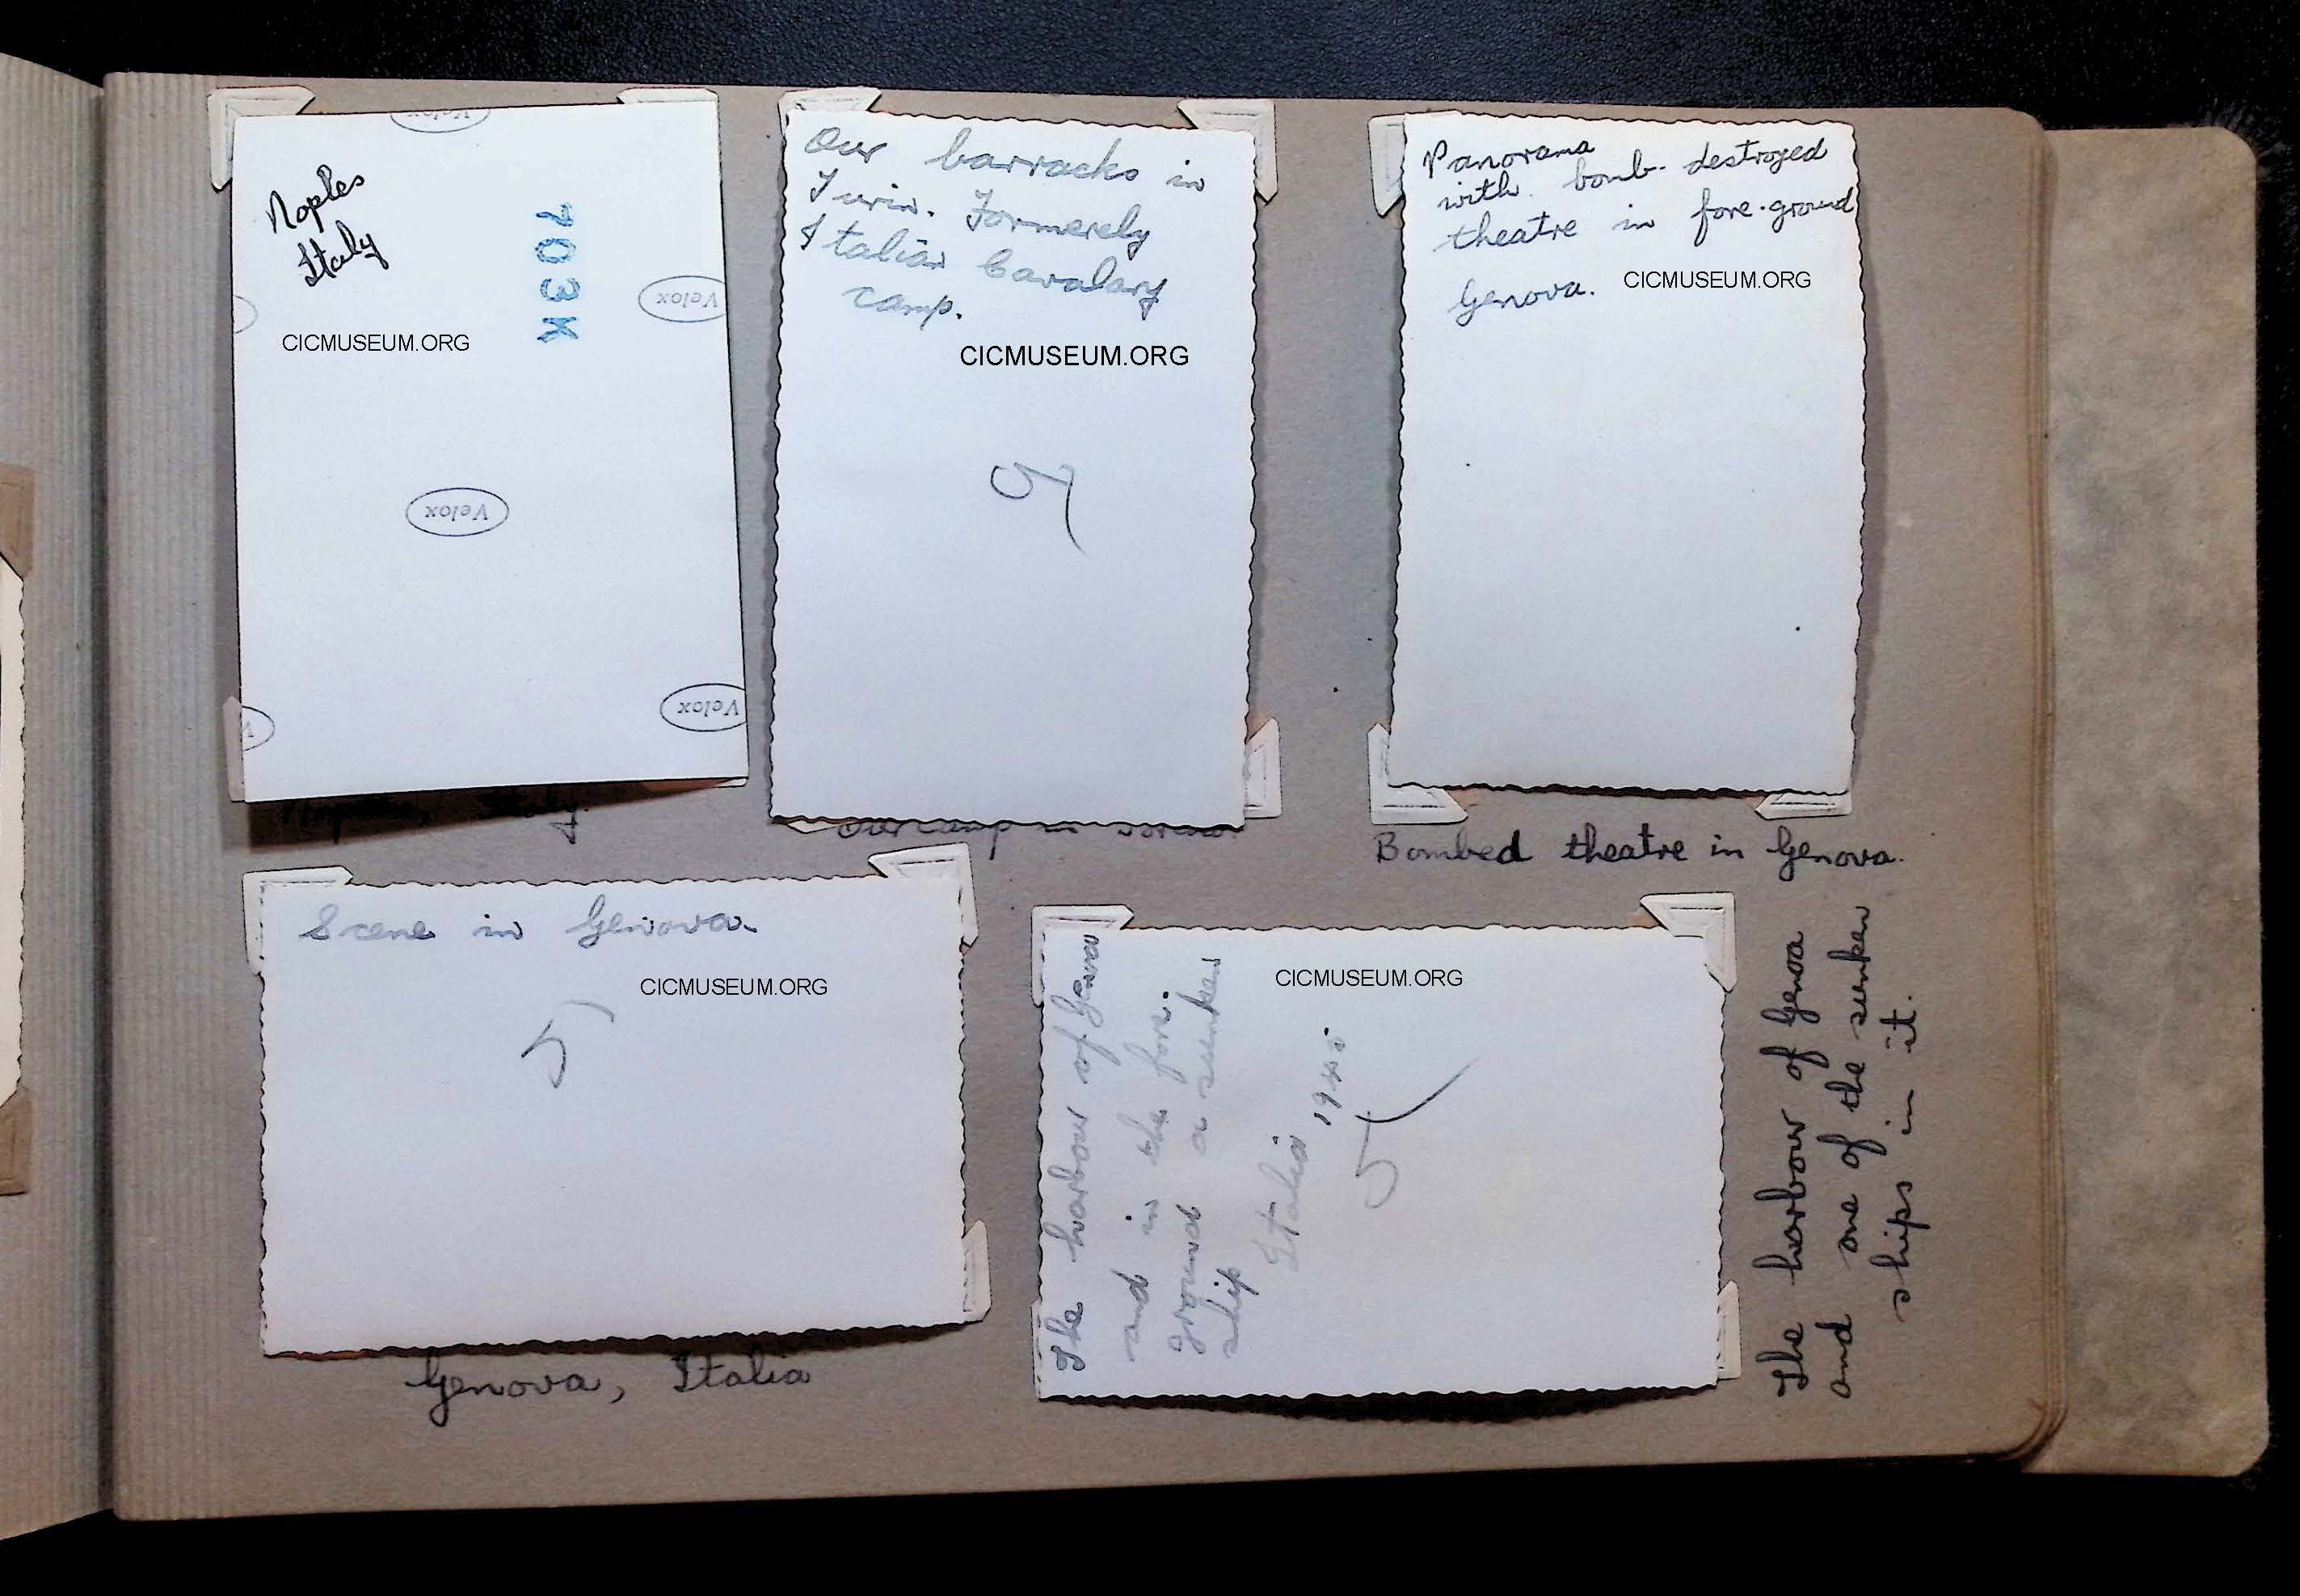 Velox
Naples
Italy
703K
Velox
CICMUSEUM.ORG
Velox
Velox
Naples, Italy.
Our barracks in
Turin. Formerely
Italian Cavalary
camp.
CICMUSEUM.ORG
9
Our camp in
Panorama
with bomb-destroyed
theatre in fore-ground
Genova.
CICMUSEUM.ORG
Bombed theatre in Genova.
Scene in Genova.
CICMUSEUM.ORG
5
Genova, Italia
The harbour of Genova
and in the fore-
ground a sunken
ship
Italia 1945
CICMUSEUM.ORG
5
The harbour of Genoa
and one of the sunken
ships in it.